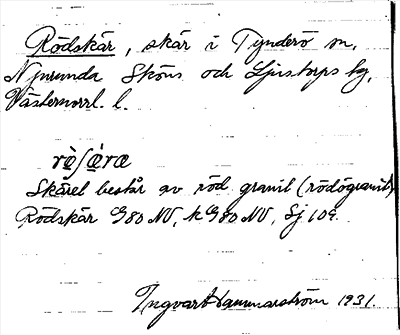 Rödskär, skär i Tynderö sn,
Njurunda Sköns och Ljustorps hg,
Västernorrl. l.
rè̱ʃæ̱̀ræ
Skäret består av röd granit (rödögranit)
Rödskär G80 NV, k G80 NV, Sj 109.
Ingvar Hammarström 1931.